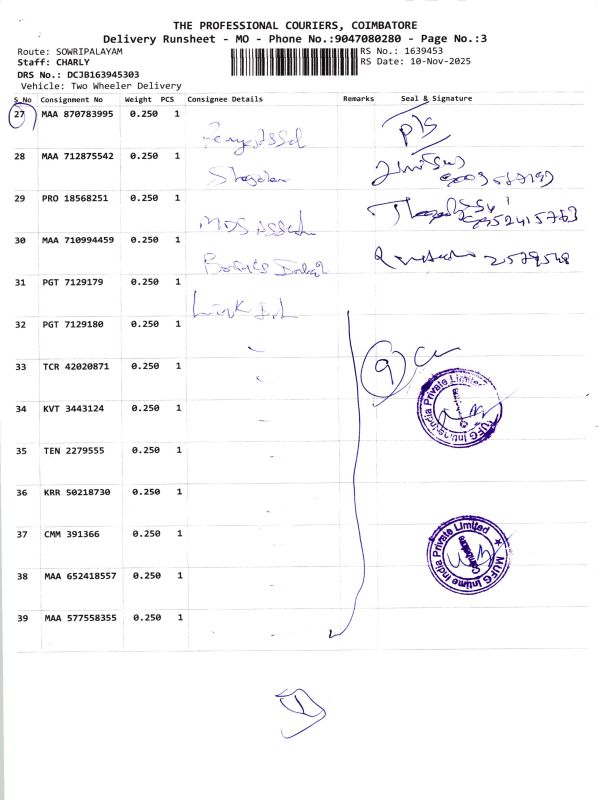 THE PROFESSIONAL COURIERS, COIMBATORE
Delivery Runsheet - MO - Phone No.:9047080280 - Page No.:3
Route: SOWRIPALAYAM
RS No.: 1639453
Staff: CHARLY
RS Date: 10-Nov-2025
DRS No.: DCJB163945303
Vehicle: Two Wheeler Delivery
S.No Consignment No Weight PCS Consignee Details Remarks Seal & Signature
27 MAA 870783995 0.250 1
28 MAA 712875542 0.250 1
29 PRO 18568251 0.250 1
30 MAA 710994459 0.250 1
31 PGT 7129179 0.250 1
32 PGT 7129180 0.250 1
33 TCR 42020871 0.250 1
9
34 KVT 3443124 0.250 1
MUFG Intime India Private Limited
35 TEN 2279555 0.250 1
36 KRR 50218730 0.250 1
37 CMM 391366 0.250 1
MUFG Intime India Private Limited
Coimbatore
38 MAA 652418557 0.250 1
39 MAA 577558355 0.250 1